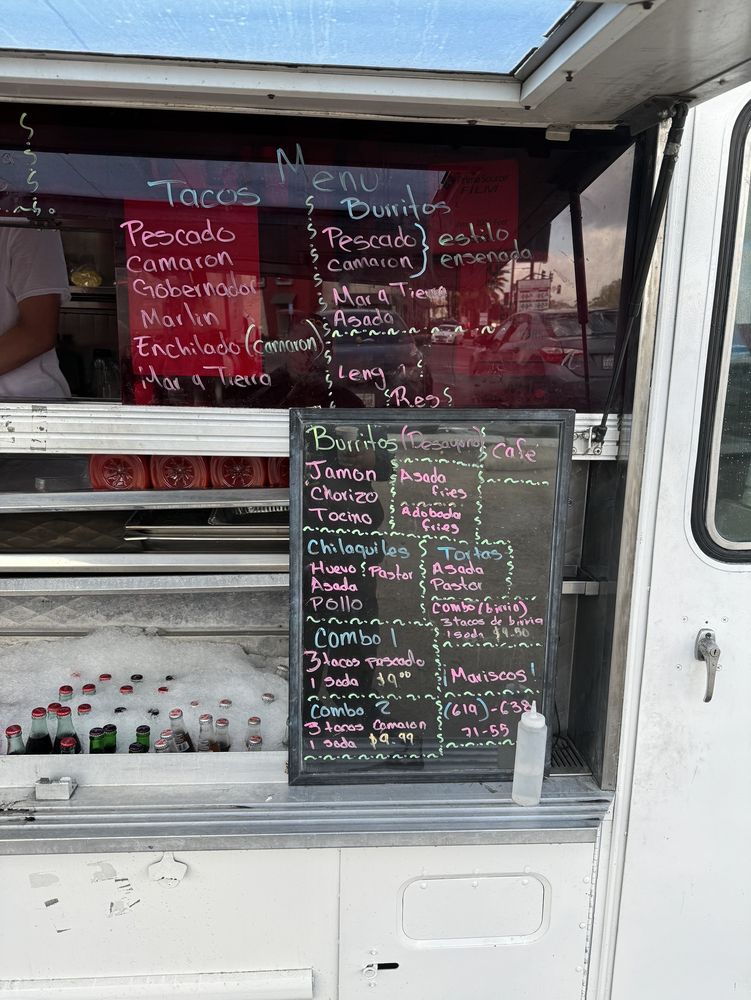 Menu
Tacos
Pescado
Camaron
Gobernador
Marlin
Enchilado (camaron)
Mar a Tierra
Burritos
Pescado } estilo
Camaron } ensenada
Mar a Tierra
Asada
Leng
Res
FILM
Burritos (Desayuno)
Jamon
Chorizo
Tocino
Asada
fries
Adobada
fries
Café
Chilaquiles
Huevo
Pastor
Asada
Pollo
Tortas
Asada
Pastor
Combo (birria)
3 tacos de birria
1 soda $9.50
Combo 1
3 tacos pescado
1 soda $9.00
¡Mariscos!
Combo 2
3 tacos Camaron
1 soda $9.99
(619)-638
71-55